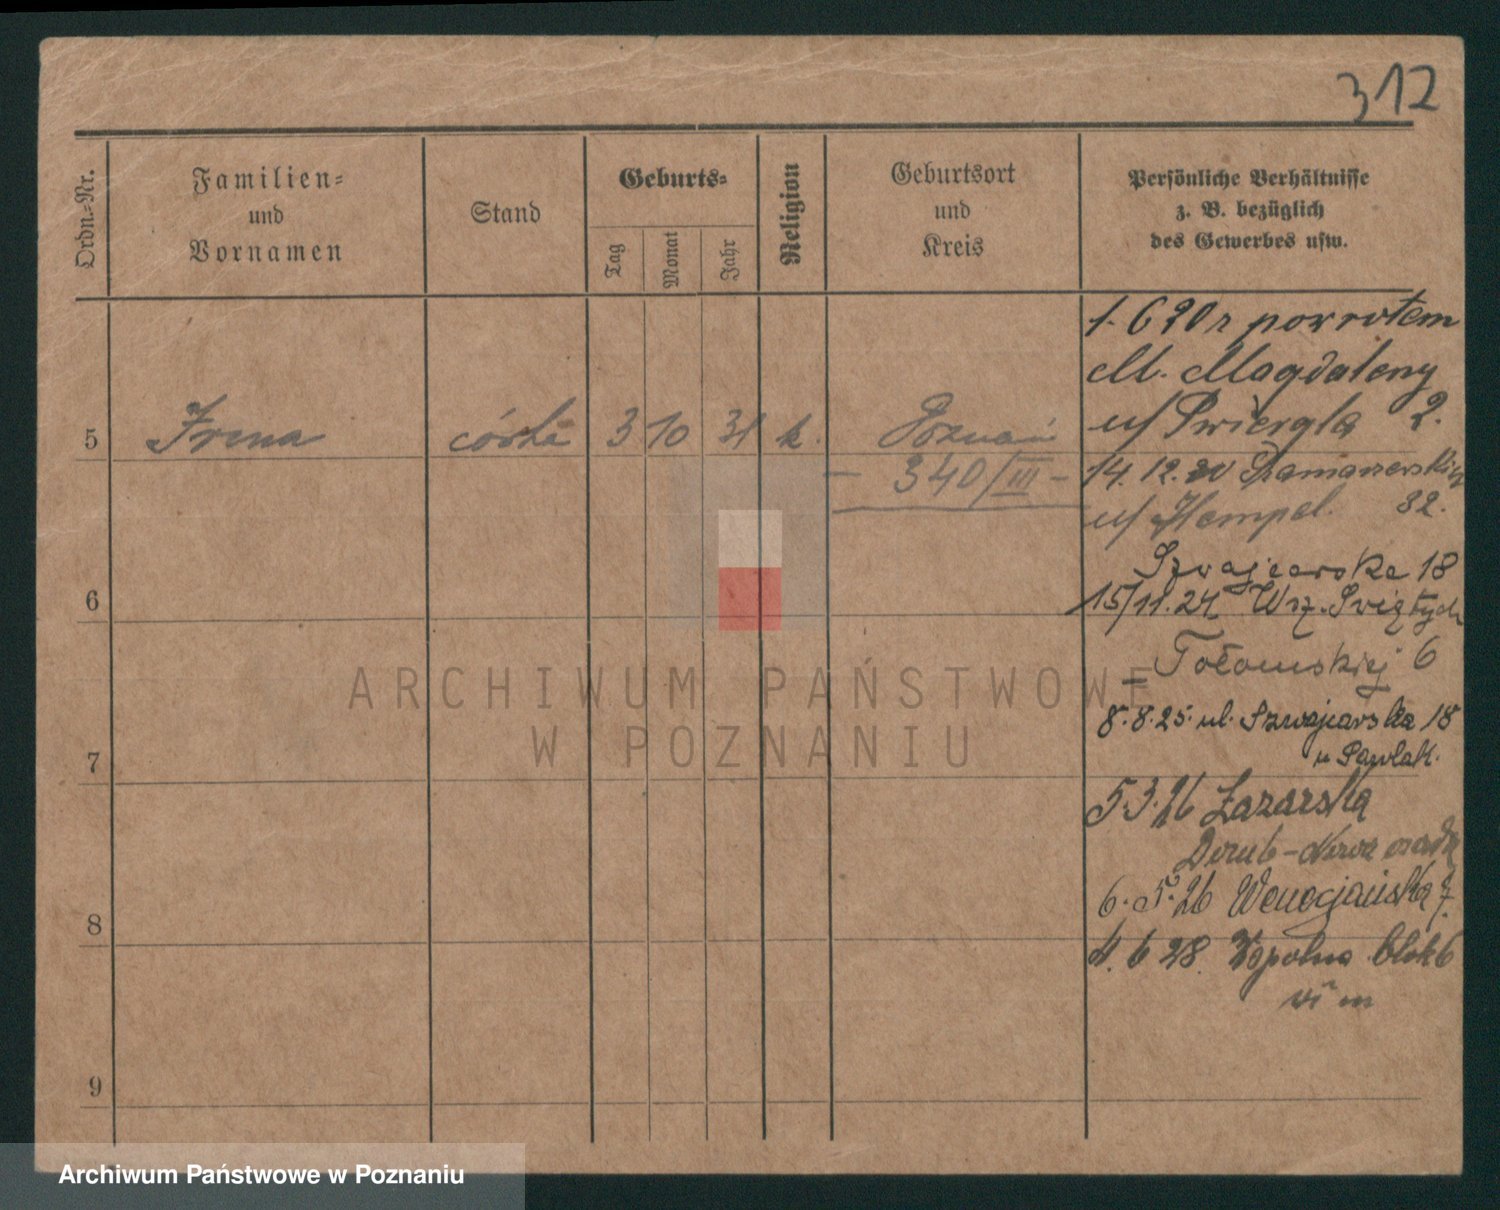 312
Ordn.-Nr.
Familien-
und
Vornamen
Stand
Geburts-
Tag
Monat
Jahr
Religion
Geburtsort
und
Kreis
Persönliche Verhältnisse
z. B. bezüglich
des Gewerbes usw.
1. 6 20 r powrotem
M. Magdaleny
u/ Świergla 2.
5 Irena córka 3 10 31 k. Poznań
- 340/III -
14. 12. 20 Szamarzewskiego
u/ Hempel. 32.
Szwajcarska 18
6
15/11.24 Wsz. Świętych
Tołomskiej 6
8.8.25. ul. Szwajcarska 18
u Pawlak.
7
5.3.26 Łazarska
6.5.26 Wenecjańska 7.
8
4. 6 28. Wspólna blok 6
9
ARCHIWUM PAŃSTWOWE
W POZNANIU
Archiwum Państwowe w Poznaniu